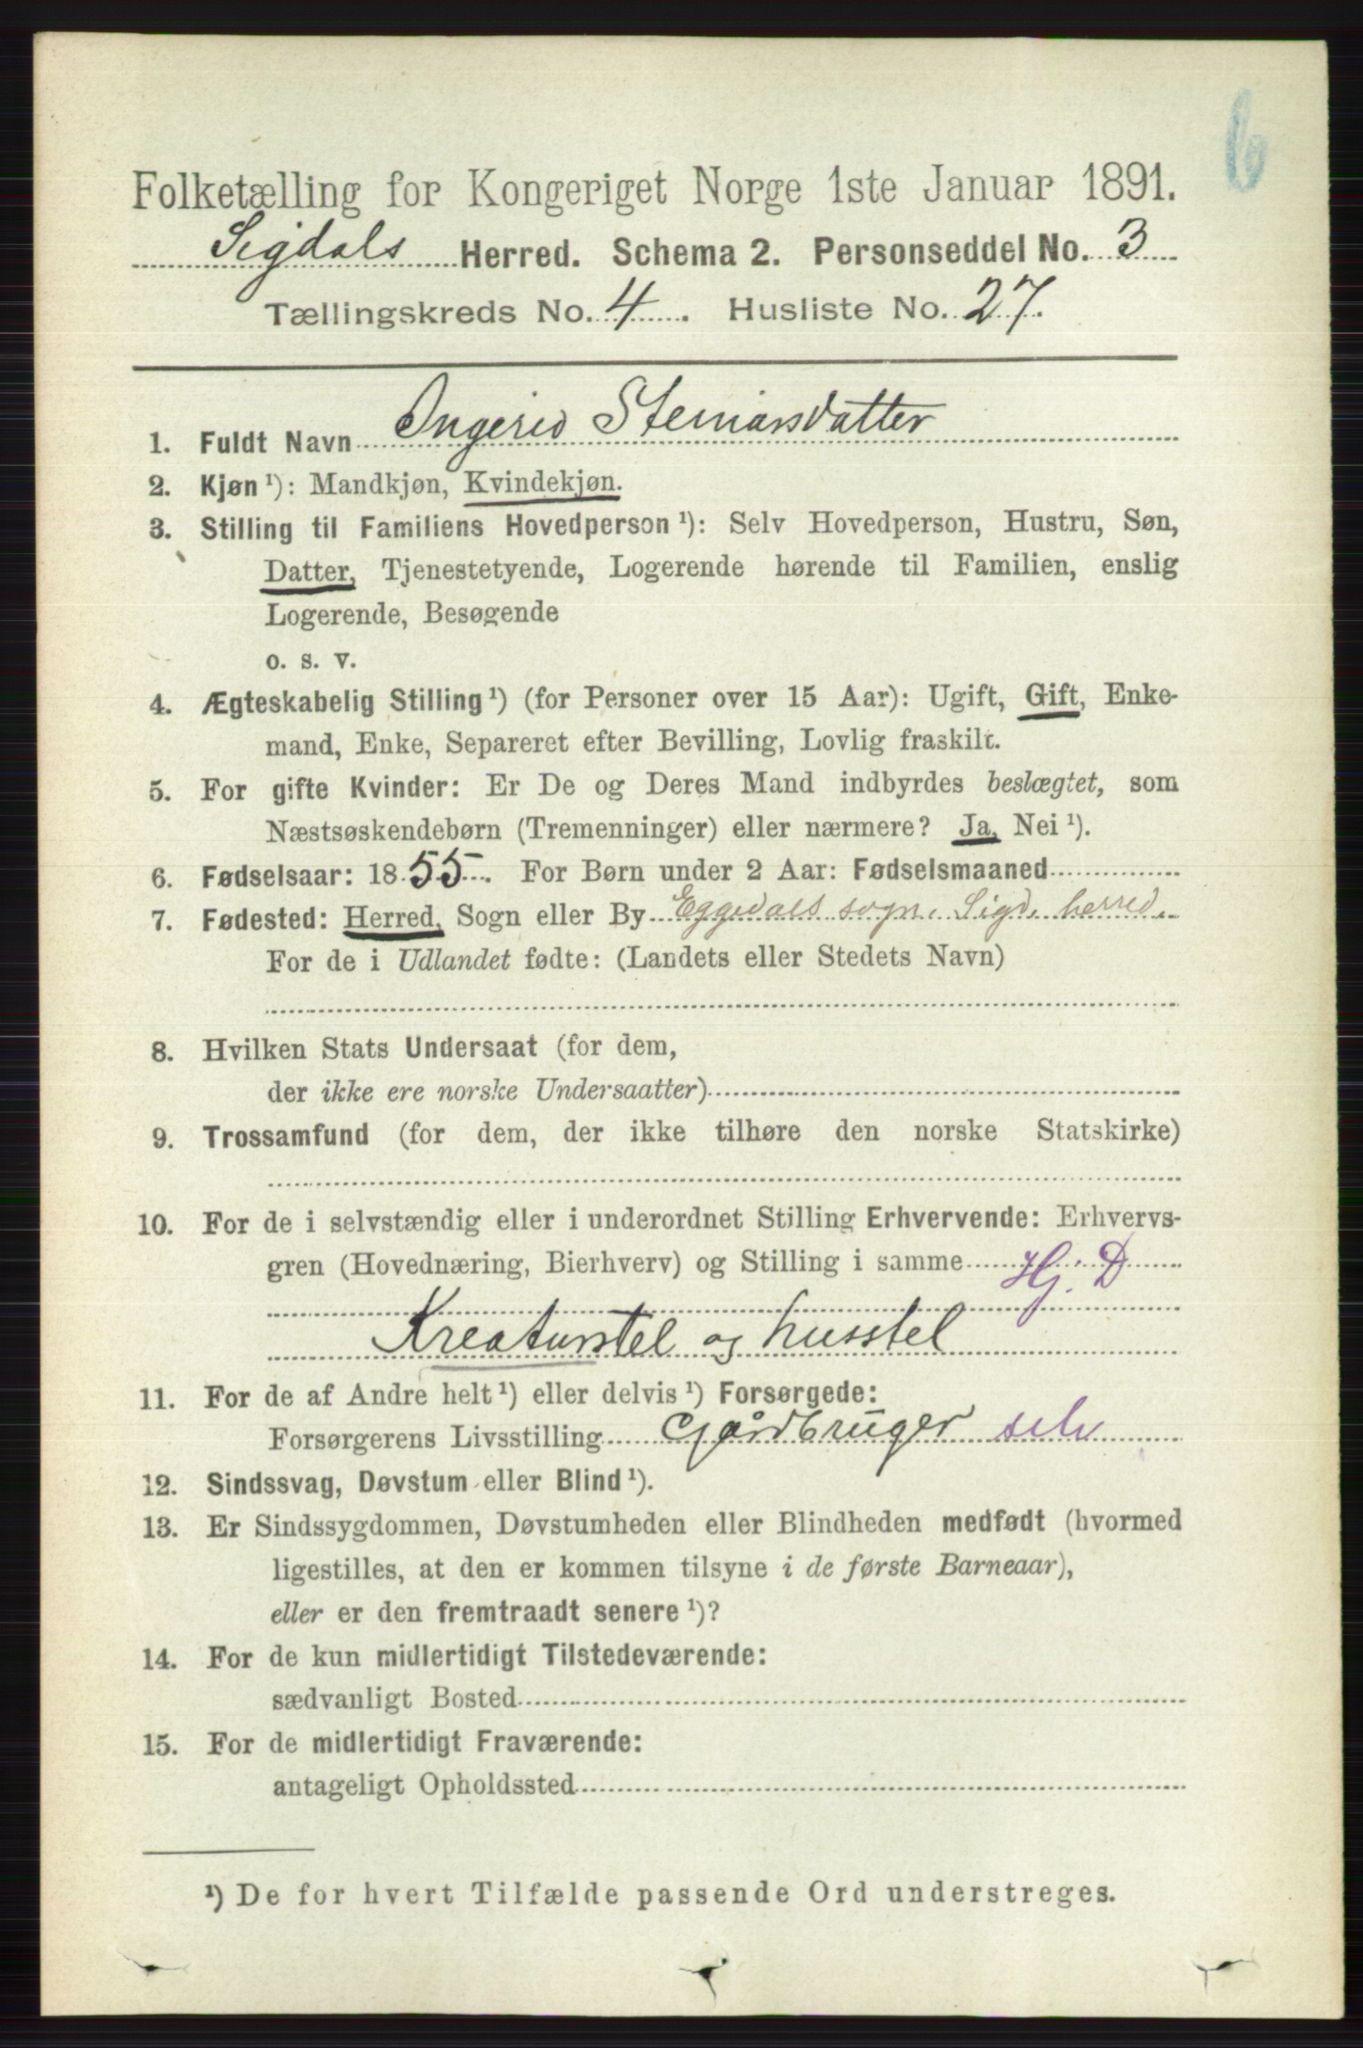 6
Folketælling for Kongeriget Norge 1ste Januar 1891.
Sigdals Herred. Schema 2. Personseddel No. 3
Tællingskreds No. 4. Husliste No. 27.
1. Fuldt Navn Ingerid Steinarsdatter
2. Kjøn ¹): Mandkjøn, Kvindekjøn.
3. Stilling til Familiens Hovedperson ¹): Selv Hovedperson, Hustru, Søn,
Datter, Tjenestetyende, Logerende hørende til Familien, enslig
Logerende, Besøgende
o. s. v.
4. Ægteskabelig Stilling ¹) (for Personer over 15 Aar): Ugift, Gift, Enke-
mand, Enke, Separeret efter Bevilling, Lovlig fraskilt.
5. For gifte Kvinder: Er De og Deres Mand indbyrdes beslægtet, som
Næstsøskendebørn (Tremenninger) eller nærmere? Ja, Nei ¹).
6. Fødselsaar: 1855. For Børn under 2 Aar: Fødselsmaaned
7. Fødested: Herred, Sogn eller By Eggedals sogn, Sigd. herred.
For de i Udlandet fødte: (Landets eller Stedets Navn)
8. Hvilken Stats Undersaat (for dem,
der ikke ere norske Undersaatter)
9. Trossamfund (for dem, der ikke tilhøre den norske Statskirke)
10. For de i selvstændig eller i underordnet Stilling Erhvervende: Erhvervs-
gren (Hovednæring, Bierhverv) og Stilling i samme Hj. D
Kreaturstel og husstel
11. For de af Andre helt ¹) eller delvis ¹) Forsørgede:
Forsørgerens Livsstilling Gårdbruger selv
12. Sindssvag, Døvstum eller Blind ¹).
13. Er Sindssygdommen, Døvstumheden eller Blindheden medfødt (hvormed
ligestilles, at den er kommen tilsyne i de første Barneaar),
eller er den fremtraadt senere ¹)?
14. For de kun midlertidigt Tilstedeværende:
sædvanligt Bosted
15. For de midlertidigt Fraværende:
antageligt Opholdssted
¹) De for hvert Tilfælde passende Ord understreges.